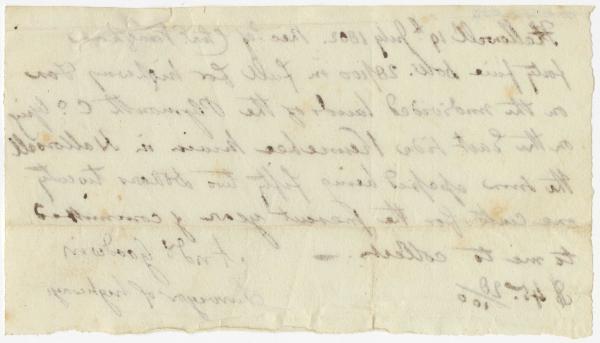 Hallowell 19th July 1802. Rec'd of Chas Vaughan
forty five doll. 20/100 in full for highway Tax
on the undivided lands of the Plymouth Co. lying
on the East side Kennebec River in Hallowell
the sum assessed being fifty two dollars twenty
one cents for the present year & committed
to me to collect. —
And Goodwin
Surveyor of highway
$ 45. 20/100